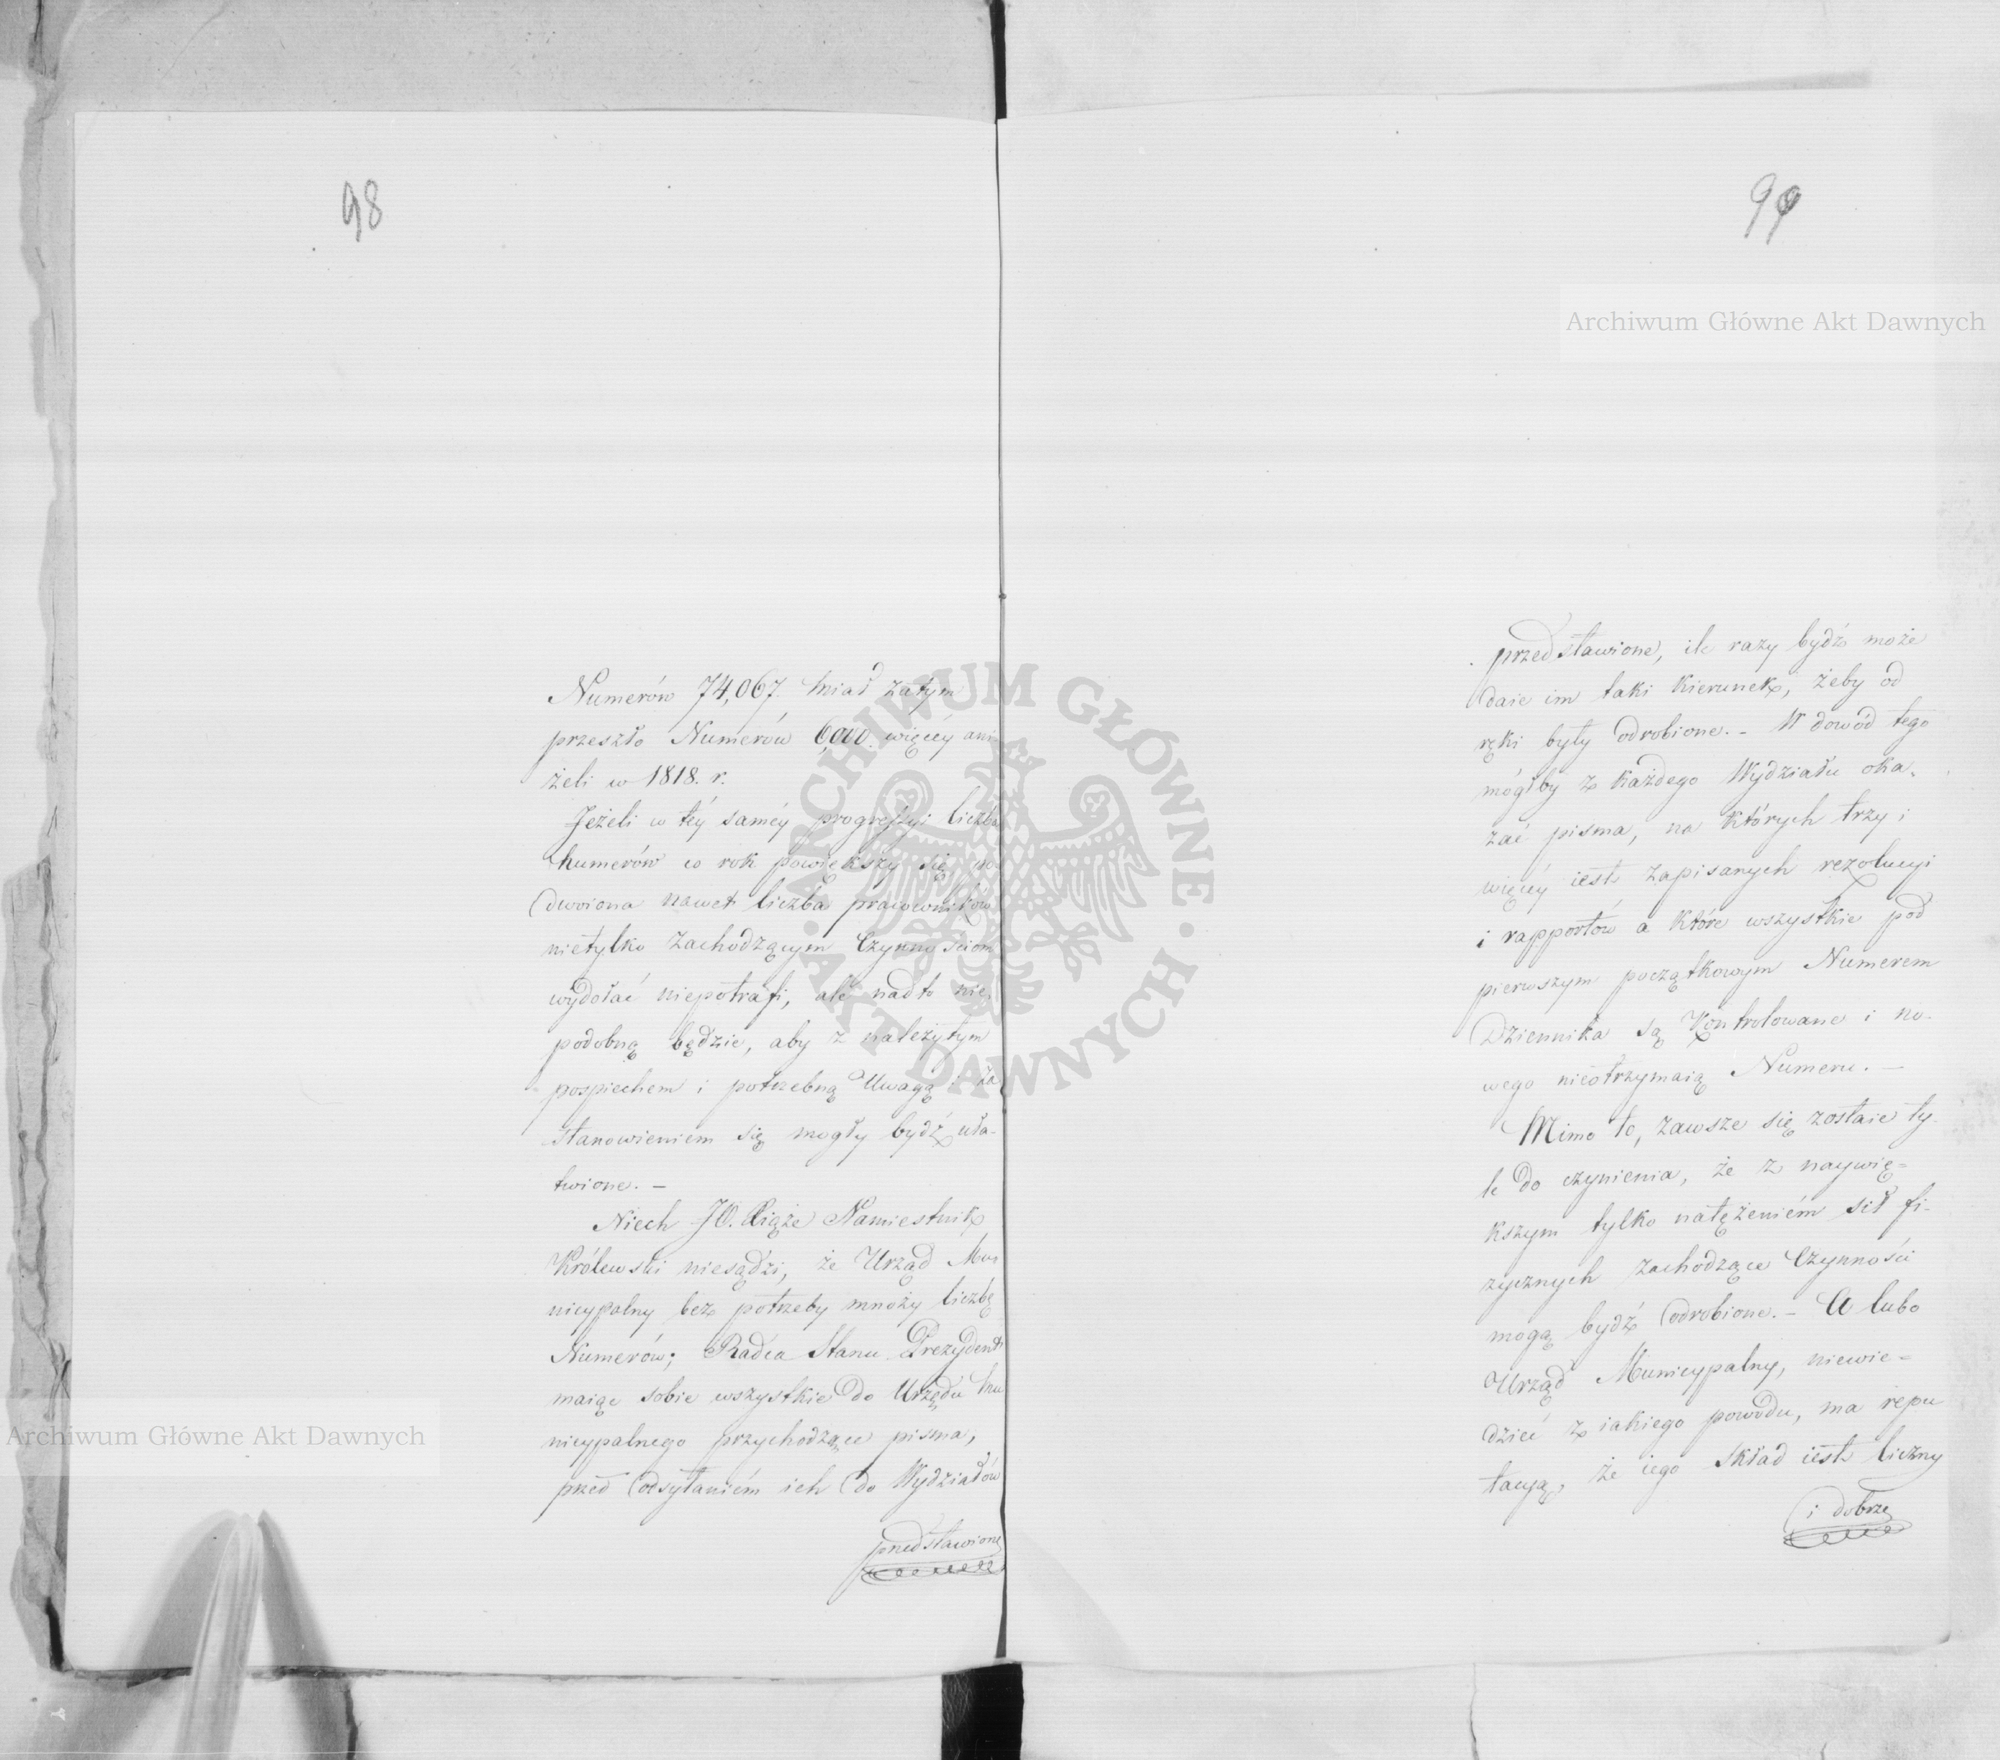 98
Numerów 74,067. miał zatym
przeszło Numerów 6,000. więcéy ani
żeli w 1818. r.
Jeżeli w téy saméy progressyi liczba
numerów co rok powiększy się, po
dwoiona nawet liczba pracowników
nietylko zachodzącym Czynnościom
wydołać niepotrafi, ale nadto nie,
podobną będzie, aby z należytym
pospiechem i potrzebną Uwagą i za
stanowieniem się mogły bydź uła-
twione. —
Niech JO. Xiąże Namiestnik
Królewski niesądzi, że Urząd Mu
nicypalny bez potrzeby mnoży liczbę
Numerów; Radca Stanu Prezydent
maiąc sobie wszystkie do Urzędu Mu
nicypalnego przychodzące pisma,
przed odsyłaniem ich do Wydziałów
przedstawione
99
przedstawione, ile razy bydź może
daie im taki kierunek, żeby od
ręki były odrobione. - W dowód tego
mógłby z każdego Wydziału oka,
zać pisma, na których trzy i
więcéy iest zapisanych rezolucyi
i rapportów a które wszystkie pod
pierwszym początkowym Numerem
Dziennika są Kontrolowane i no-
wego nieotrzymaią Numeru. —
Mimo to, zawsze się zostaie ty-
le do czynienia, że z naywię=
kszym tylko natężeniém sił fi-
zycznych zachodzące Czynności
mogą bydź odrobione. - A lubo
Urząd Municypalny, niewie=
dzieć z iakiego powodu, ma repu
tacyą, że iego skład iest liczny
i dobrze
Archiwum Główne Akt Dawnych
Archiwum Główne Akt Dawnych
ARCHIWUM GŁÓWNE
AKT DAWNYCH